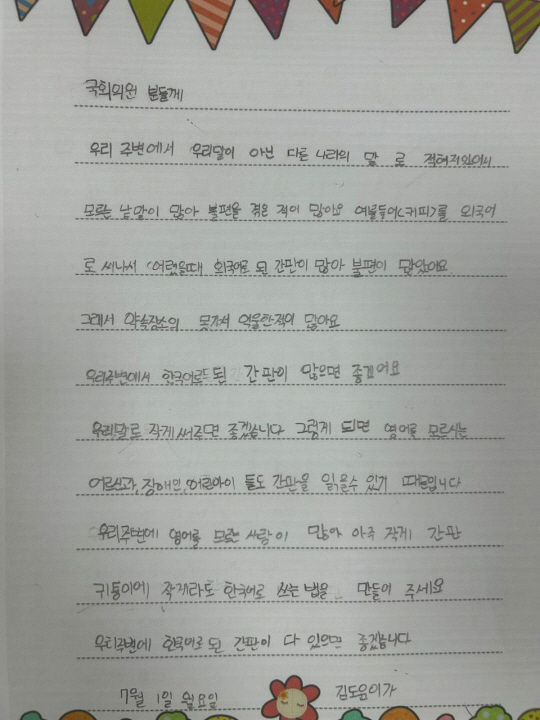 국회의원 분들께
우리 주변에서 우리말이 아닌 다른 나라의 말 로 적혀져있어서
모르는 낱말이 많아 불편을 겪은 적이 많아요 예를들어<커피>를 외국어
로 써나서 (어렸을때) 외국어로 된 간판이 많아 불편이 많았어요
그래서 약속장소의 못가서 억울한적이 많아요
우리주변에서 한국어로된 간판이 많으면 좋겠어요
우리말로 작게써주면 좋겠습니다 그렇게 되면 영어를 모르시는
어르신과,장애인,어린아이 들도 간판을 읽을수 있기 때문입니다
우리주변에 영어를 모르는 사람이 많아 아주 작게 간판
귀퉁이에 작게라도 한국어로 쓰는 법을 만들어 주세요
우리주변에 한국어로된 간판이 다 있으면 좋겠습니다
7월 1일 월요일 김도윤이가